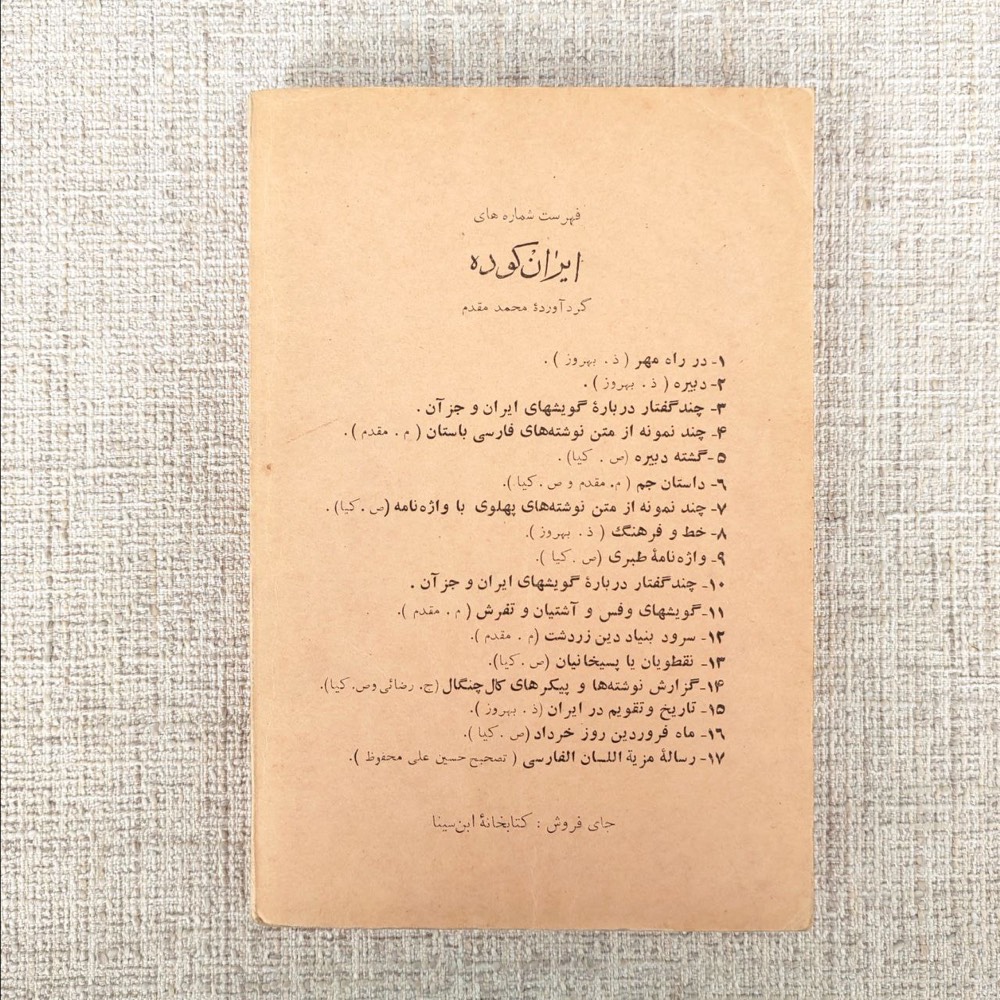 فهرست شماره های
ایران کوده
گرد آوردهٔ محمد مقدم
۱- در راه مهر ( ذ . بهروز ) .
۲- دبیره ( ذ . بهروز ) .
۳- چند گفتار دربارهٔ گویشهای ایران و جز آن .
۴- چند نمونه از متن نوشته‌های فارسی باستان ( م . مقدم ) .
۵- گشته دبیره (ص . کیا) .
۶- داستان جم ( م. مقدم و ص . کیا ).
۷- چند نمونه از متن نوشته‌های پهلوی با واژه‌نامه (ص . کیا) .
۸- خط و فرهنگ ( ذ . بهروز ).
۹- واژه‌نامهٔ طبری (ص . کیا ).
۱۰- چند گفتار دربارهٔ گویشهای ایران و جز آن .
۱۱- گویشهای وفس و آشتیان و تفرش ( م . مقدم ).
۱۲- سرود بنیاد دین زردشت (م . مقدم ).
۱۳- نقطویان یا پسیخانیان (ص . کیا).
۱۴- گزارش نوشته‌ها و پیکرهای کال چنگال (ج. رضائی وص. کیا).
۱۵- تاریخ و تقویم در ایران (ذ . بهروز ).
۱۶- ماه فروردین روز خرداد (ص . کیا ).
۱۷- رسالهٔ مزیة اللسان الفارسی ( تصحیح حسین علی محفوظ ).
جای فروش : کتابخانهٔ ابن سینا